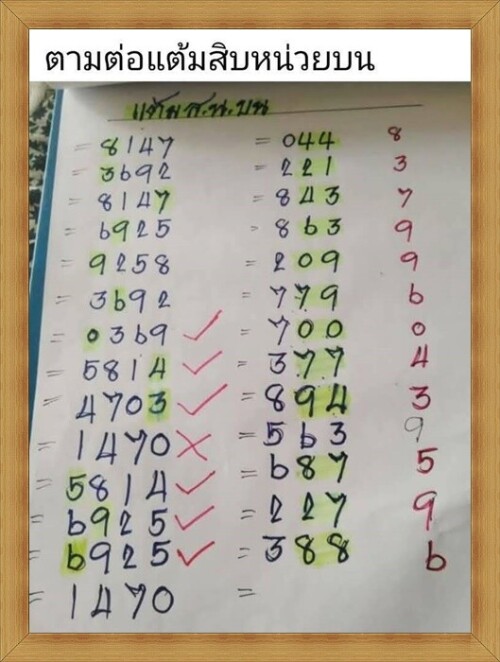 ตามต่อแต้มสิบหน่วยบน
แต้ม ส.น.บน
= 8147 = 044 8
= 3692 = 221 3
= 8147 = 843 7
= 6925 = 863 9
= 9258 = 209 9
= 3692 = 779 6
= 0369 ✓ = 700 0
= 5814 ✓ = 377 4
= 4703 ✓ = 894 3
= 1470 ✗ = 563 9
= 5814 ✓ = 687 5
= 6925 ✓ = 227 9
= 6925 ✓ = 388 6
= 1470 =